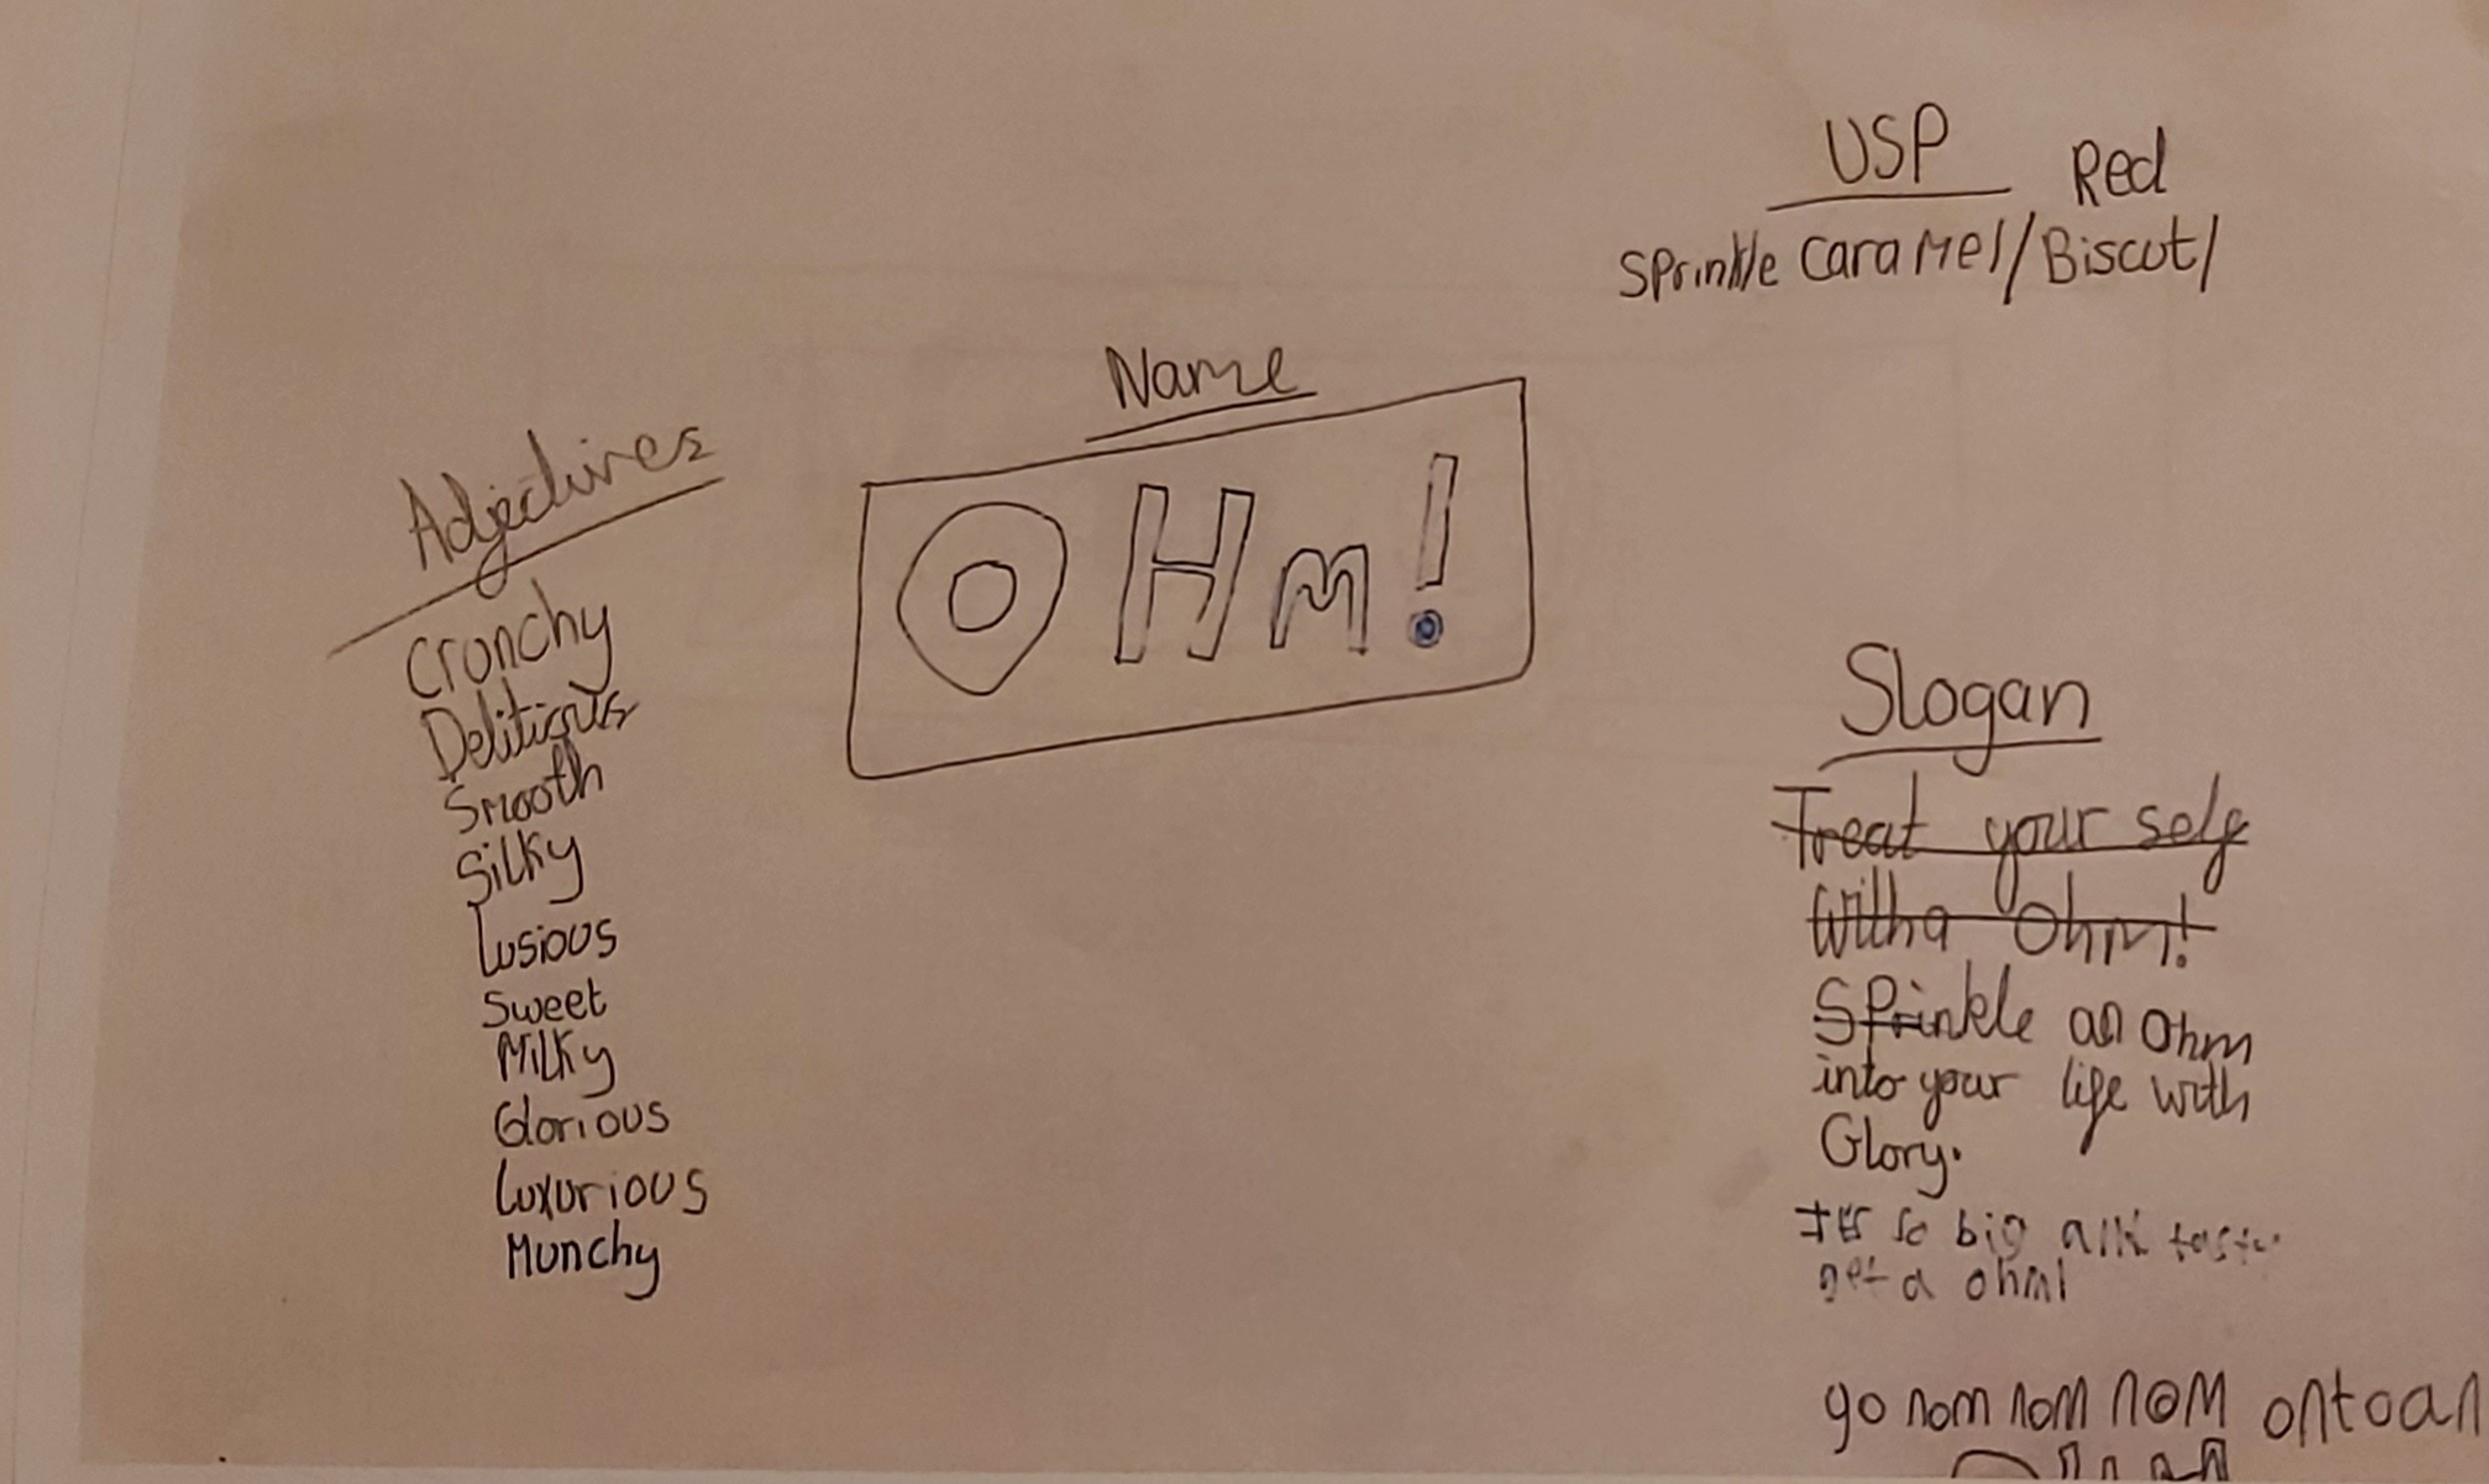 USP
Red
Sprinkle Caramel/Biscut/
Name
OHm!
Adjectives
Cronchy
Delitious
Smooth
Silky
Lusious
Sweet
Milky
Glorious
Luxurious
Munchy
Slogan
Treat your self
With a Ohm!
Sprinkle an Ohm
into your life with
Glory.
so big
get a ohm!
go nom nom nom onto an